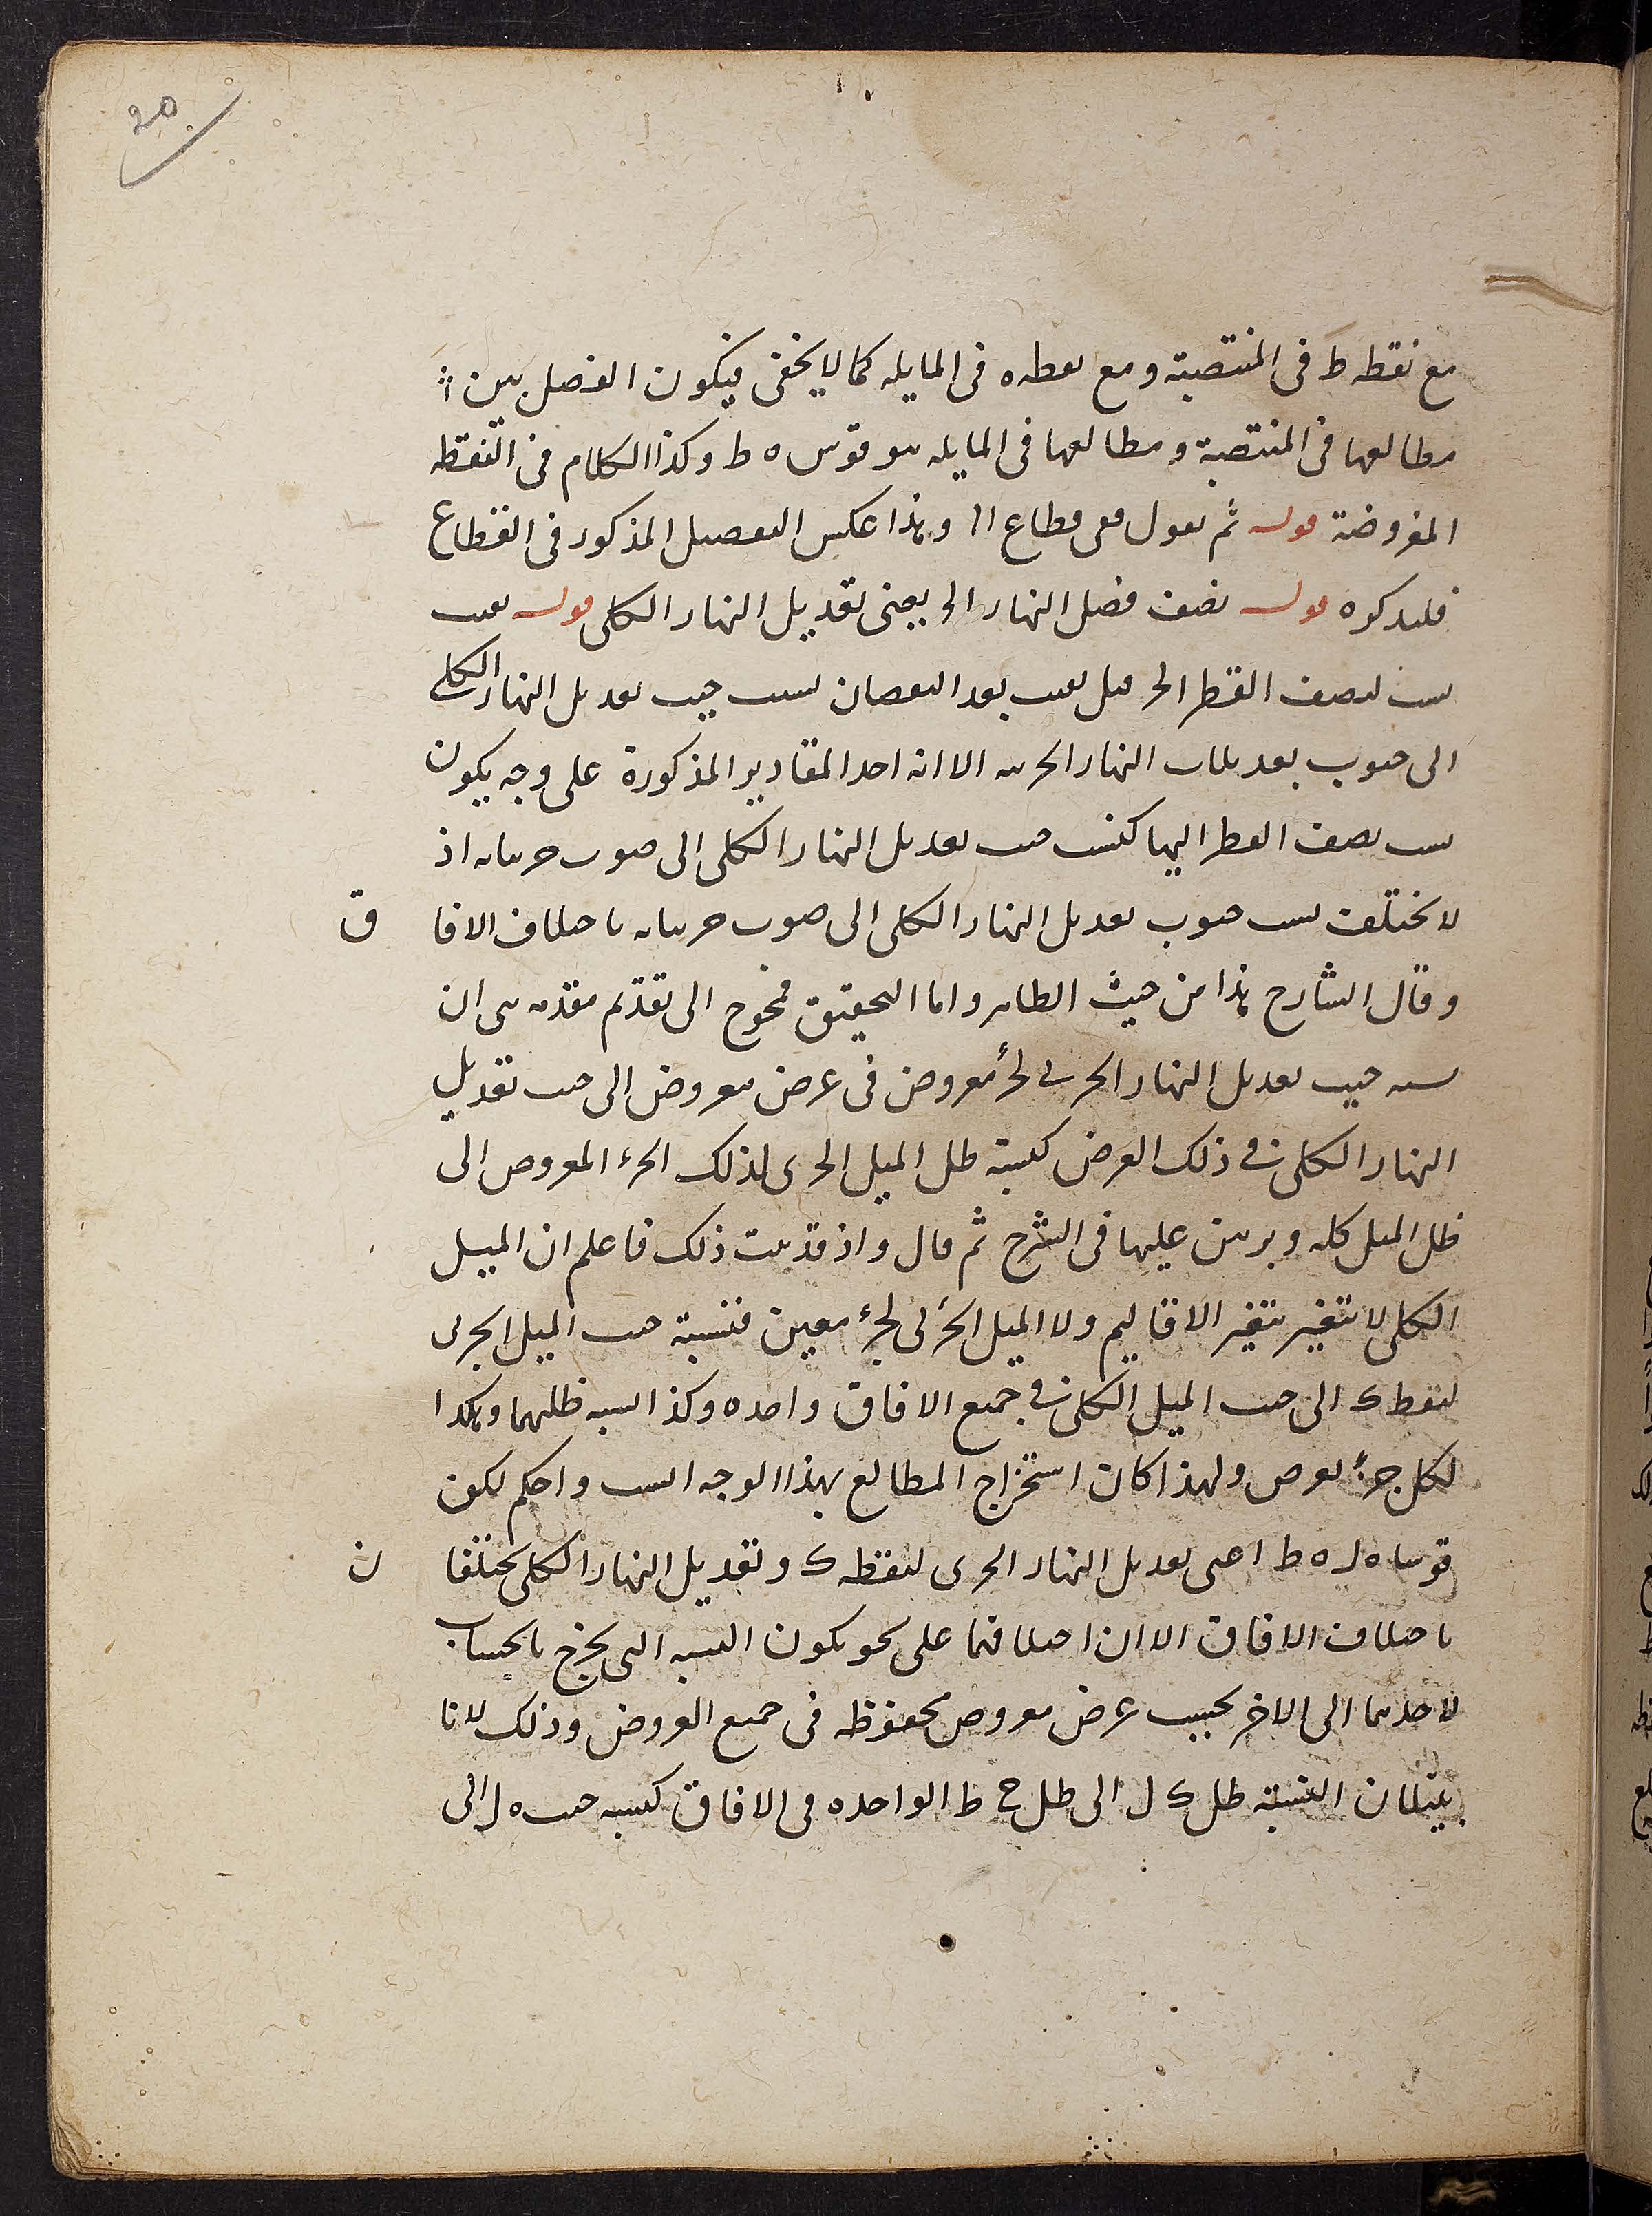 20
مع نقطه ط فى المنتصبة ومع نقطه ه فى المايله كما لا يخفى فيكون الفصل بين
مطالعها فى المنتصبة و مطالعها فى المايله هو قوس ه ط وكذا الكلام فى النقطه
المفروضة قوله ثم نقول فى قطاع اا وهذا عكس التفصيل المذكور فى القطاع
فليذكره قوله نصف فضل النهار الخ يعنى تعديل النهار الكلى قوله
نصف القطر الخ قيل بعد النقصان نسب جيب تعديل النهار الكلى
الى جيوب تعديلات النهار الجزئيه الا انه احد المقادير المذكورة على وجه يكون
نسب نصف القطر اليها كنسب جيب تعديل النهار الكلى الى جيوب جزئياته اذ
لا يختلف نسب جيوب تعديل النهار الكلى الى جيوب جزئياته باختلاف الافا ق
وقال الشارح هذا من حيث الظاهر واما التحقيق فمحوج الى تقدّم مقدمه هى ان
نسبه جيب تعديل النهار الجزئى لجزء مفروض فى عرض مفروض الى جيب تعديل
النهار الكلى فى ذلك العرض كنسبة ظل الميل الجزئى لذلك الجزء المفروض الى
ظل الميل كله وبرهن عليها فى الشرح ثم قال واذ قد ثبت ذلك فاعلم ان الميل
الكلى لا يتغير بتغير الاقاليم ولا الميل الجزئى لجزء معين فنسبة جيب الميل الجزئى
لنقطه ك الى جيب الميل الكلى فى جميع الافاق واحده وكذا نسبه ظليهما وهكذا
لكل جزء يفرض ولهذا كان استخراج المطالع بهذا الوجه انسب واحكم لكون
قوسى ه ل ه ط اعنى تعديل النهار الجزئى لنقطه ك وتعديل النهار الكلى مختلفا ن
باختلاف الافاق الا ان اختلافهما على نحو يكون النسبه التى يخرج بالحساب
لاحدهما الى الاخر بحسب عرض مفروض محفوظه فى جميع العروض وذلك لانا
بينا ان النسبة ظل ك ل الى ظل ح ط الواحده فى الافاق كنسبه جيب ه ل الى